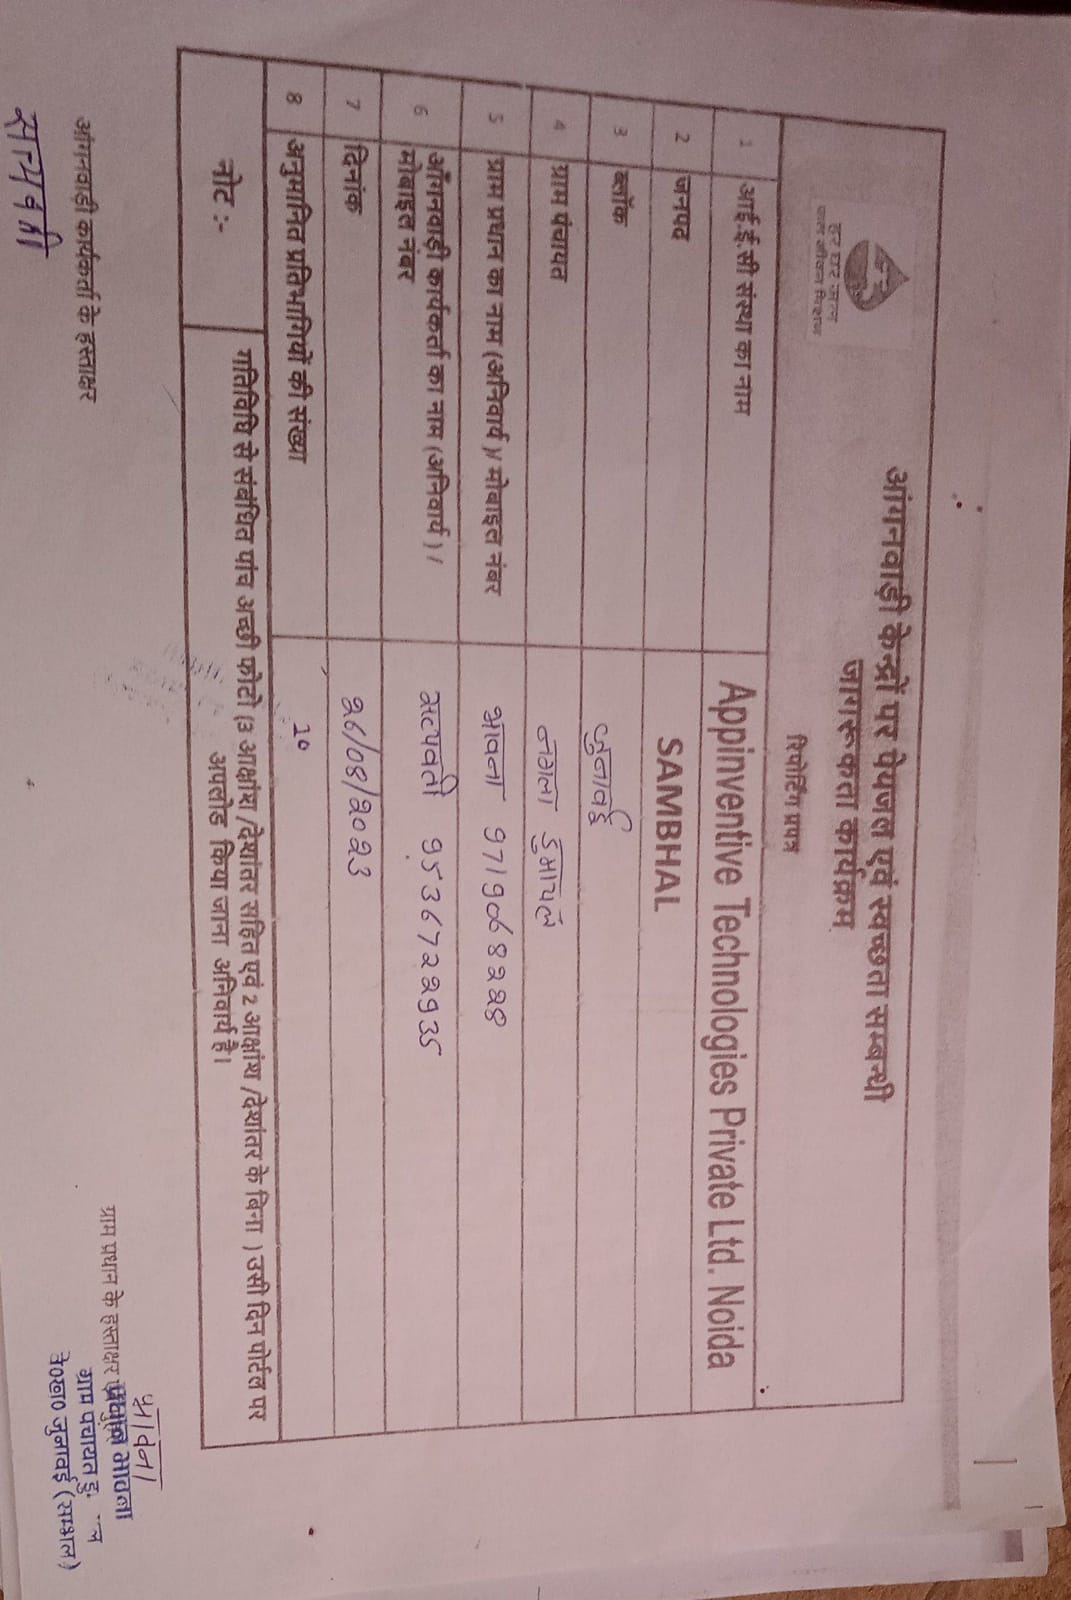 हर घर जल
जल जीवन मिशन
आंगनवाड़ी केन्द्रों पर पेयजल एवं स्वच्छता सम्बन्धी
जागरूकता कार्यक्रम
रिपोर्टिंग प्रपत्र
1 आई.ई.सी संस्था का नाम Appinventive Technologies Private Ltd. Noida
2 जनपद SAMBHAL
3 ब्लॉक जुनावई
4 ग्राम पंचायत नगला
5 ग्राम प्रधान का नाम (अनिवार्य)/ मोबाइल नंबर भावना
6 आँगनवाड़ी कार्यकर्ता का नाम (अनिवार्य) /
मोबाइल नंबर सत्यवती 9536722935
7 दिनांक 26/08/2023
8 अनुमानित प्रतिभागियों की संख्या
नोट :- गतिविधि से संबंधित पांच अच्छी फोटो (3 आक्षांश /देशांतर सहित एवं 2 आक्षांश /देशांतर के बिना ) उसी दिन पोर्टल पर
अपलोड किया जाना अनिवार्य है।
आंगनवाड़ी कार्यकर्ता के हस्ताक्षर
सत्यवती
भावना
ग्राम प्रधान के हस्ताक्षर
भावना
ग्राम पंचायत
वि०ख० जुनावई (सम्भल)